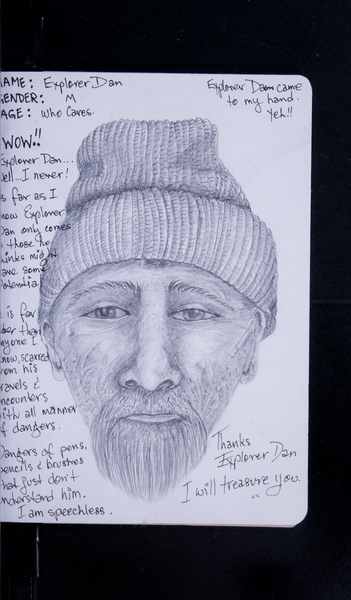 AME: Explorer Dan
ENDER: M
AGE: who cares.
Explorer Dan came
to my hand.
Yeh!!
WOW!!
Explorer Dan...
ell...I never!
s far as I
now Explorer
Dan only comes
those he
hinks might
ave some
otential
is far
ber than
nyone I
now, scarred
rom his
ravels &
ncounters
ith all manner
f dangers.
Dangers of pens,
encils & brushes
hat just don't
nderstand him.
I am speechless.
Thanks
Explorer Dan
I will treasure you.
xx